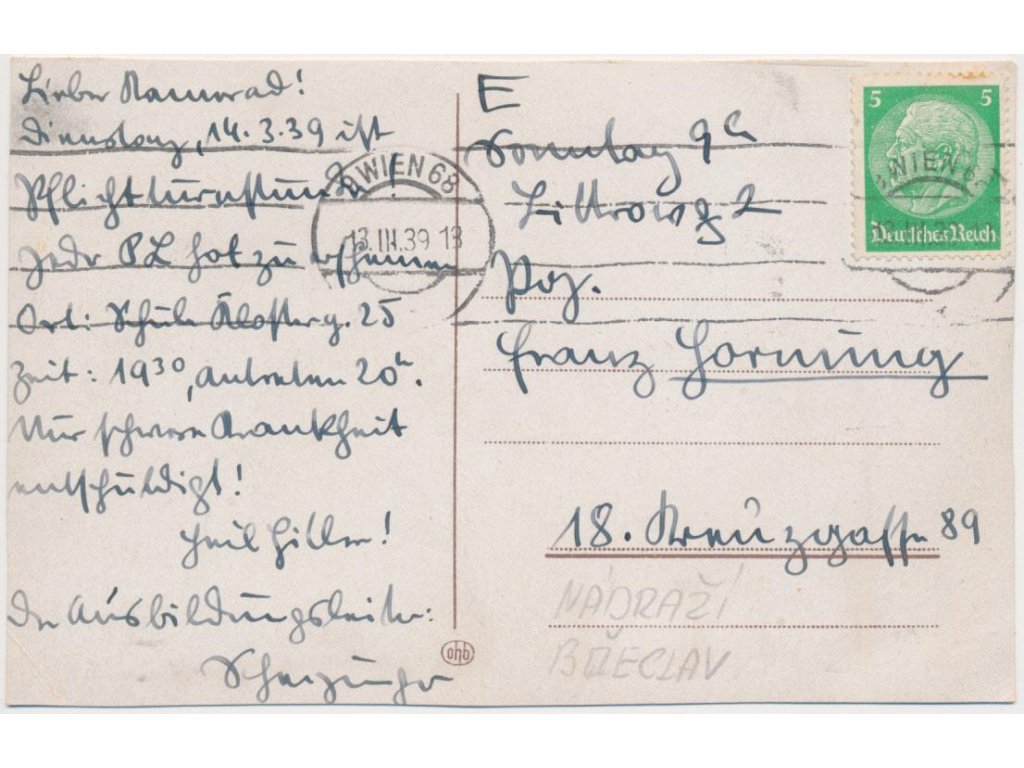 Lieber Kamerad!
Dienstag, 14.3.39 ist
Pflichtturnstunde!
Jeder PL hat zu erscheinen
Ort: Schule Klosterg. 25
Zeit: 19³⁰, antreten 20ʰ.
Nur schwere Krankheit
entschuldigt!
Heil Hitler!
Der Ausbildungsleiter:
ohb
E
Sonntag 9ʰ
Littrowg 2
Pg.
Franz Hornung
18. Kreuzgasse 89
NÁDRAŽÍ
BŘECLAV
WIEN 68
13.III.39 18
5 5
WIEN
Deutsches Reich